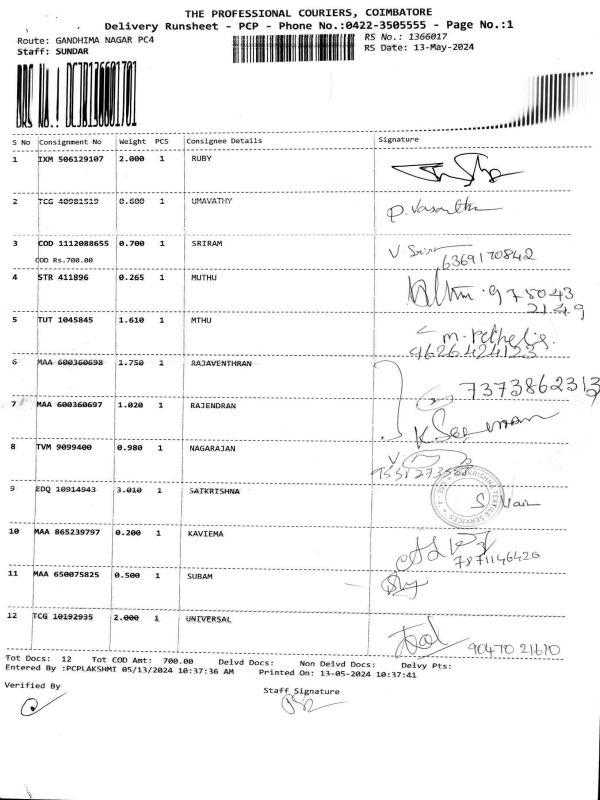 THE PROFESSIONAL COURIERS, COIMBATORE
Delivery Runsheet - PCP - Phone No.:0422-3505555 - Page No.:1
Route: GANDHIMA NAGAR PC4
Staff: SUNDAR
RS No.: 1366017
RS Date: 13-May-2024
DRS No.: DCJB136601701
S No Consignment No Weight PCS Consignee Details Signature
1 IXM 506129107 2.000 1 RUBY
2 TCG 40981519 0.600 1 UMAVATHY P. Vasantha
3 COD 1112088655 0.700 1 SRIRAM
COD Rs.700.00 6369170842
4 STR 411896 0.265 1 MUTHU 975043
2149
5 TUT 1045845 1.610 1 MTHU
9626424123
6 MAA 600360698 1.750 1 RAJAVENTHRAN 7373862313
7 MAA 600360697 1.020 1 RAJENDRAN
8 TVM 9099400 0.980 1 NAGARAJAN
9 EDQ 10914943 3.010 1 SAIKRISHNA
10 MAA 865239797 0.200 1 KAVIEMA
7871146420
11 MAA 650075825 0.500 1 SUBAM
12 TCG 10192935 2.000 1 UNIVERSAL
90470 21610
Tot Docs: 12 Tot COD Amt: 700.00 Delvd Docs: Non Delvd Docs: Delvy Pts:
Entered By :PCPLAKSHMI 05/13/2024 10:37:36 AM Printed On: 13-05-2024 10:37:41
Verified By Staff Signature